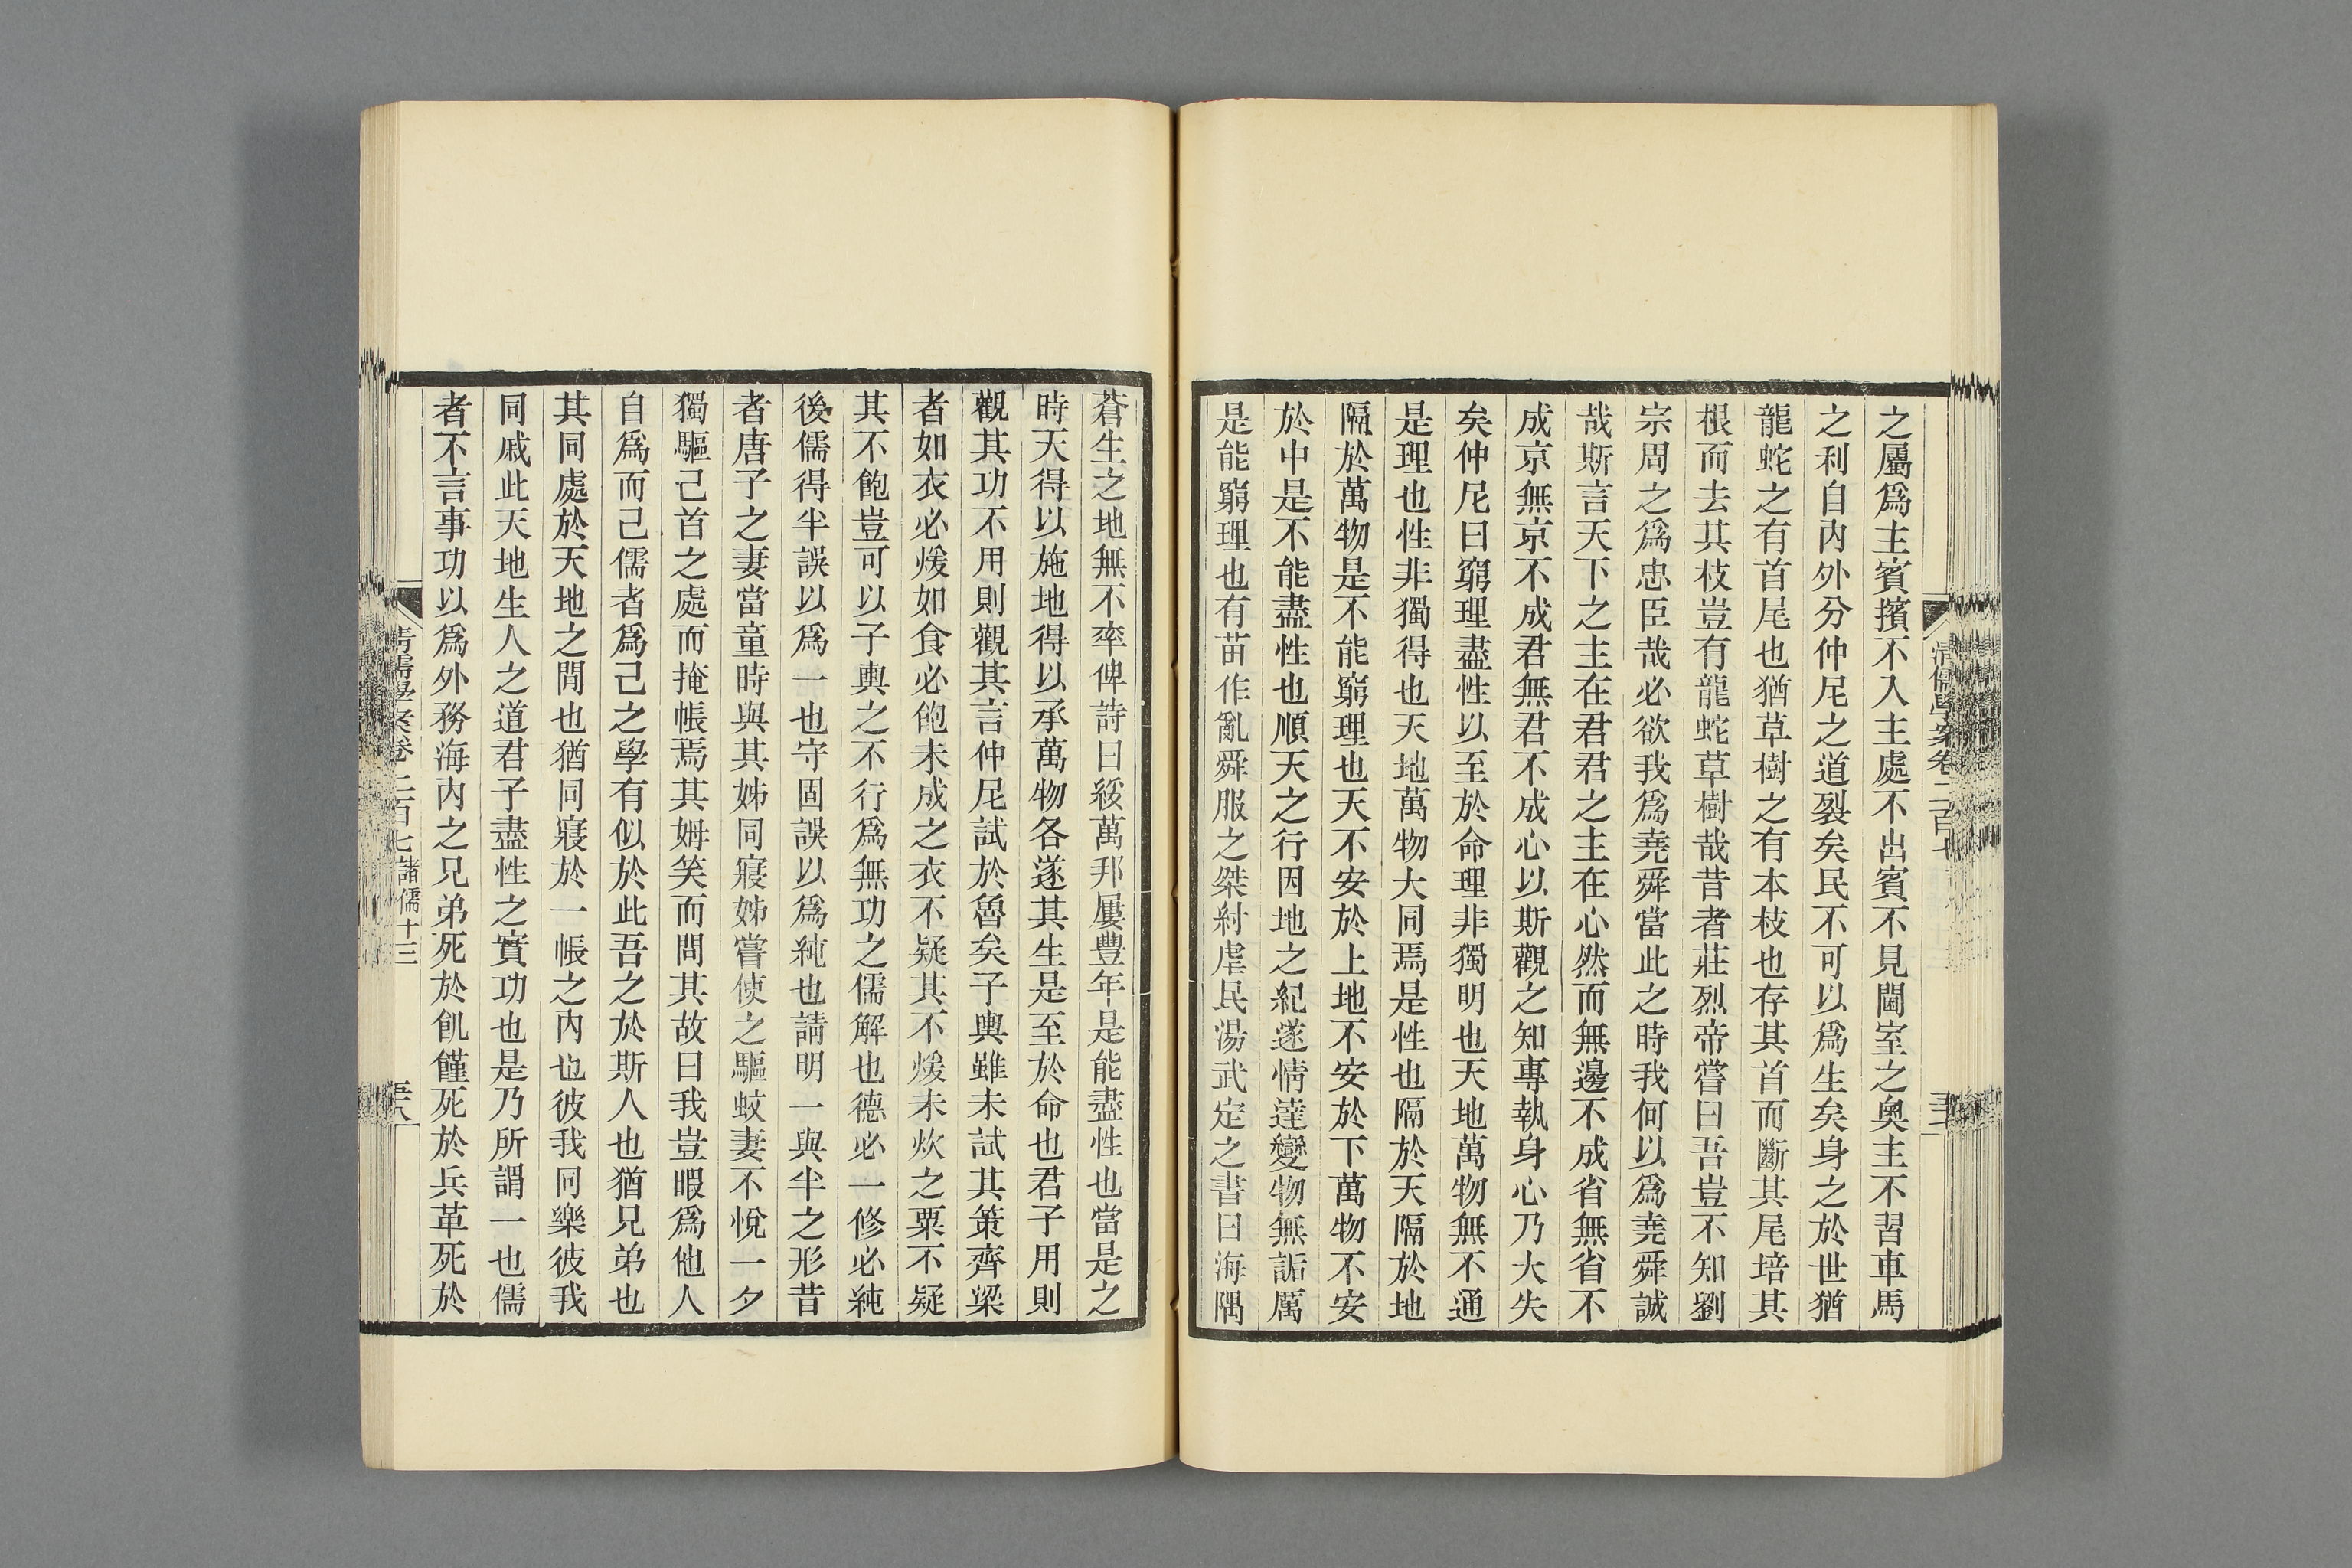 之屬爲主賓擯不入主處不出賓不見閫室之奧主不習車馬
之利自內外分仲尼之道裂矣民不可以爲生矣身之於世猶
龍蛇之有首尾也猶草樹之有本枝也存其首而斷其尾培其
根而去其枝豈有龍蛇草樹哉昔者莊烈帝嘗曰吾豈不知劉
宗周之爲忠臣哉必欲我爲堯舜當此之時我何以爲堯舜誠
哉斯言天下之主在君君之主在心然而無邊不成省無省不
成京無京不成君無君不成心以斯觀之知專執身心乃大失
矣仲尼曰窮理盡性以至於命理非獨明也天地萬物無不通
是理也性非獨得也天地萬物大同焉是性也隔於天隔於地
隔於萬物是不能窮理也天不安於上地不安於下萬物不安
於中是不能盡性也順天之行因地之紀遂情達變物無詬厲
是能窮理也有苗作亂舜服之桀紂虐民湯武定之書曰海隅
蒼生之地無不率俾詩曰綏萬邦屢豐年是能盡性也當是之
時天得以施地得以承萬物各遂其生是至於命也君子用則
觀其功不用則觀其言仲尼試於魯矣子輿雖未試其策齊梁
者如衣必煖如食必飽未成之衣不疑其不煖未炊之粟不疑
其不飽豈可以子輿之不行爲無功之儒解也德必一修必純
後儒得半誤以爲一也守固誤以爲純也請明一與半之形昔
者唐子之妻當童時與其姊同寢姊嘗使之驅蚊妻不悅一夕
獨驅己首之處而掩帳焉其姆笑而問其故曰我豈暇爲他人
自爲而已儒者爲己之學有似於此吾之於斯人也猶兄弟也
其同處於天地之閒也猶同寢於一帳之內也彼我同樂彼我
同戚此天地生人之道君子盡性之實功也是乃所謂一也儒
者不言事功以爲外務海內之兄弟死於飢饉死於兵革死於
清儒學案卷二百七 諸儒十三